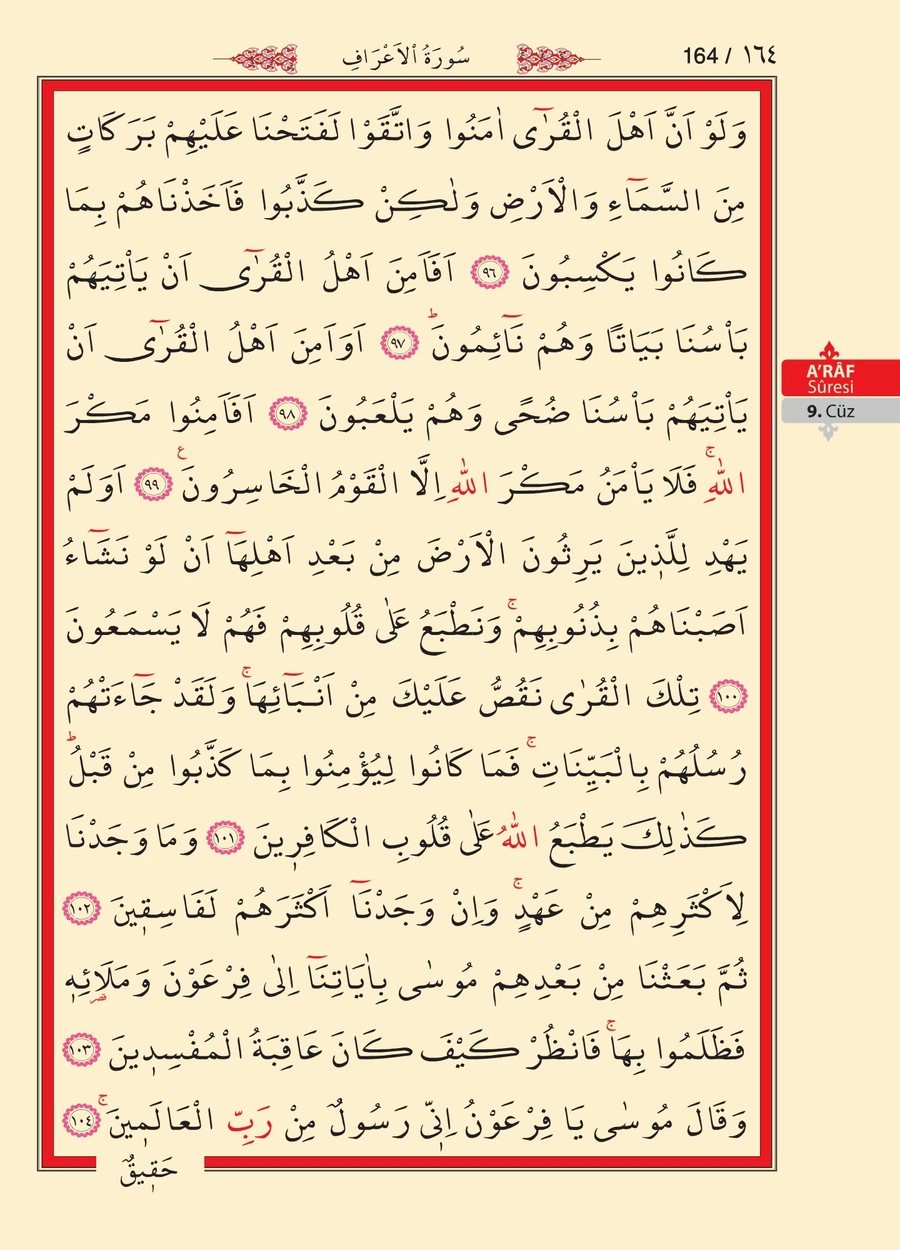 سُورَةُ الْاَعْرَافِ
164 / ١٦٤
وَلَوْ اَنَّ اَهْلَ الْقُرٰٓى اٰمَنُوا وَاتَّقَوْا لَفَتَحْنَا عَلَيْهِمْ بَرَكَاتٍ
مِنَ السَّمَٓاءِ وَالْاَرْضِ وَلٰكِنْ كَذَّبُوا فَاَخَذْنَاهُمْ بِمَا
كَانُوا يَكْسِبُونَ ٩٦ اَفَاَمِنَ اَهْلُ الْقُرٰٓى اَنْ يَأْتِيَهُمْ
بَأْسُنَا بَيَاتًا وَهُمْ نَٓائِمُونَۜ ٩٧ اَوَاَمِنَ اَهْلُ الْقُرٰٓى اَنْ
يَأْتِيَهُمْ بَأْسُنَا ضُحًى وَهُمْ يَلْعَبُونَ ٩٨ اَفَاَمِنُوا مَكْرَ
اللّٰهِۚ فَلَا يَأْمَنُ مَكْرَ اللّٰهِ اِلَّا الْقَوْمُ الْخَاسِرُونَ۟ ٩٩ اَوَلَمْ
يَهْدِ لِلَّذ۪ينَ يَرِثُونَ الْاَرْضَ مِنْ بَعْدِ اَهْلِهَٓا اَنْ لَوْ نَشَٓاءُ
اَصَبْنَاهُمْ بِذُنُوبِهِمْۚ وَنَطْبَعُ عَلٰى قُلُوبِهِمْ فَهُمْ لَا يَسْمَعُونَ
١٠٠ تِلْكَ الْقُرٰى نَقُصُّ عَلَيْكَ مِنْ اَنْبَٓائِهَاۚ وَلَقَدْ جَٓاءَتْهُمْ
رُسُلُهُمْ بِالْبَيِّنَاتِۚ فَمَا كَانُوا لِيُؤْمِنُوا بِمَا كَذَّبُوا مِنْ قَبْلُۜ
كَذٰلِكَ يَطْبَعُ اللّٰهُ عَلٰى قُلُوبِ الْكَافِر۪ينَ ١٠١ وَمَا وَجَدْنَا
لِاَكْثَرِهِمْ مِنْ عَهْدٍۚ وَاِنْ وَجَدْنَٓا اَكْثَرَهُمْ لَفَاسِق۪ينَ ١٠٢
ثُمَّ بَعَثْنَا مِنْ بَعْدِهِمْ مُوسٰى بِاٰيَاتِنَٓا اِلٰى فِرْعَوْنَ وَمَلَا۬ئِه۪
فَظَلَمُوا بِهَاۚ فَانْظُرْ كَيْفَ كَانَ عَاقِبَةُ الْمُفْسِد۪ينَ ١٠٣
وَقَالَ مُوسٰى يَا فِرْعَوْنُ اِنّ۪ي رَسُولٌ مِنْ رَبِّ الْعَالَم۪ينَۚ ١٠٤
حَق۪يقٌ
A'RÂF
Sûresi
9. Cüz